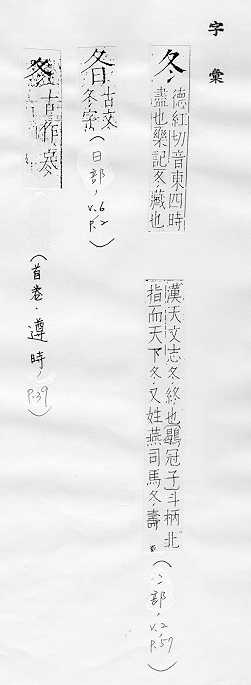 字彙
冬 德紅切音東四時
盡也樂記冬藏也
漢天文志冬終也鶡冠子斗柄北
指而天下冬又姓燕司馬冬壽
(冫部, v.2, p.57)
古文
冬字
(日部, v.6 p.2)
古作
(首卷．遵時, p.39)